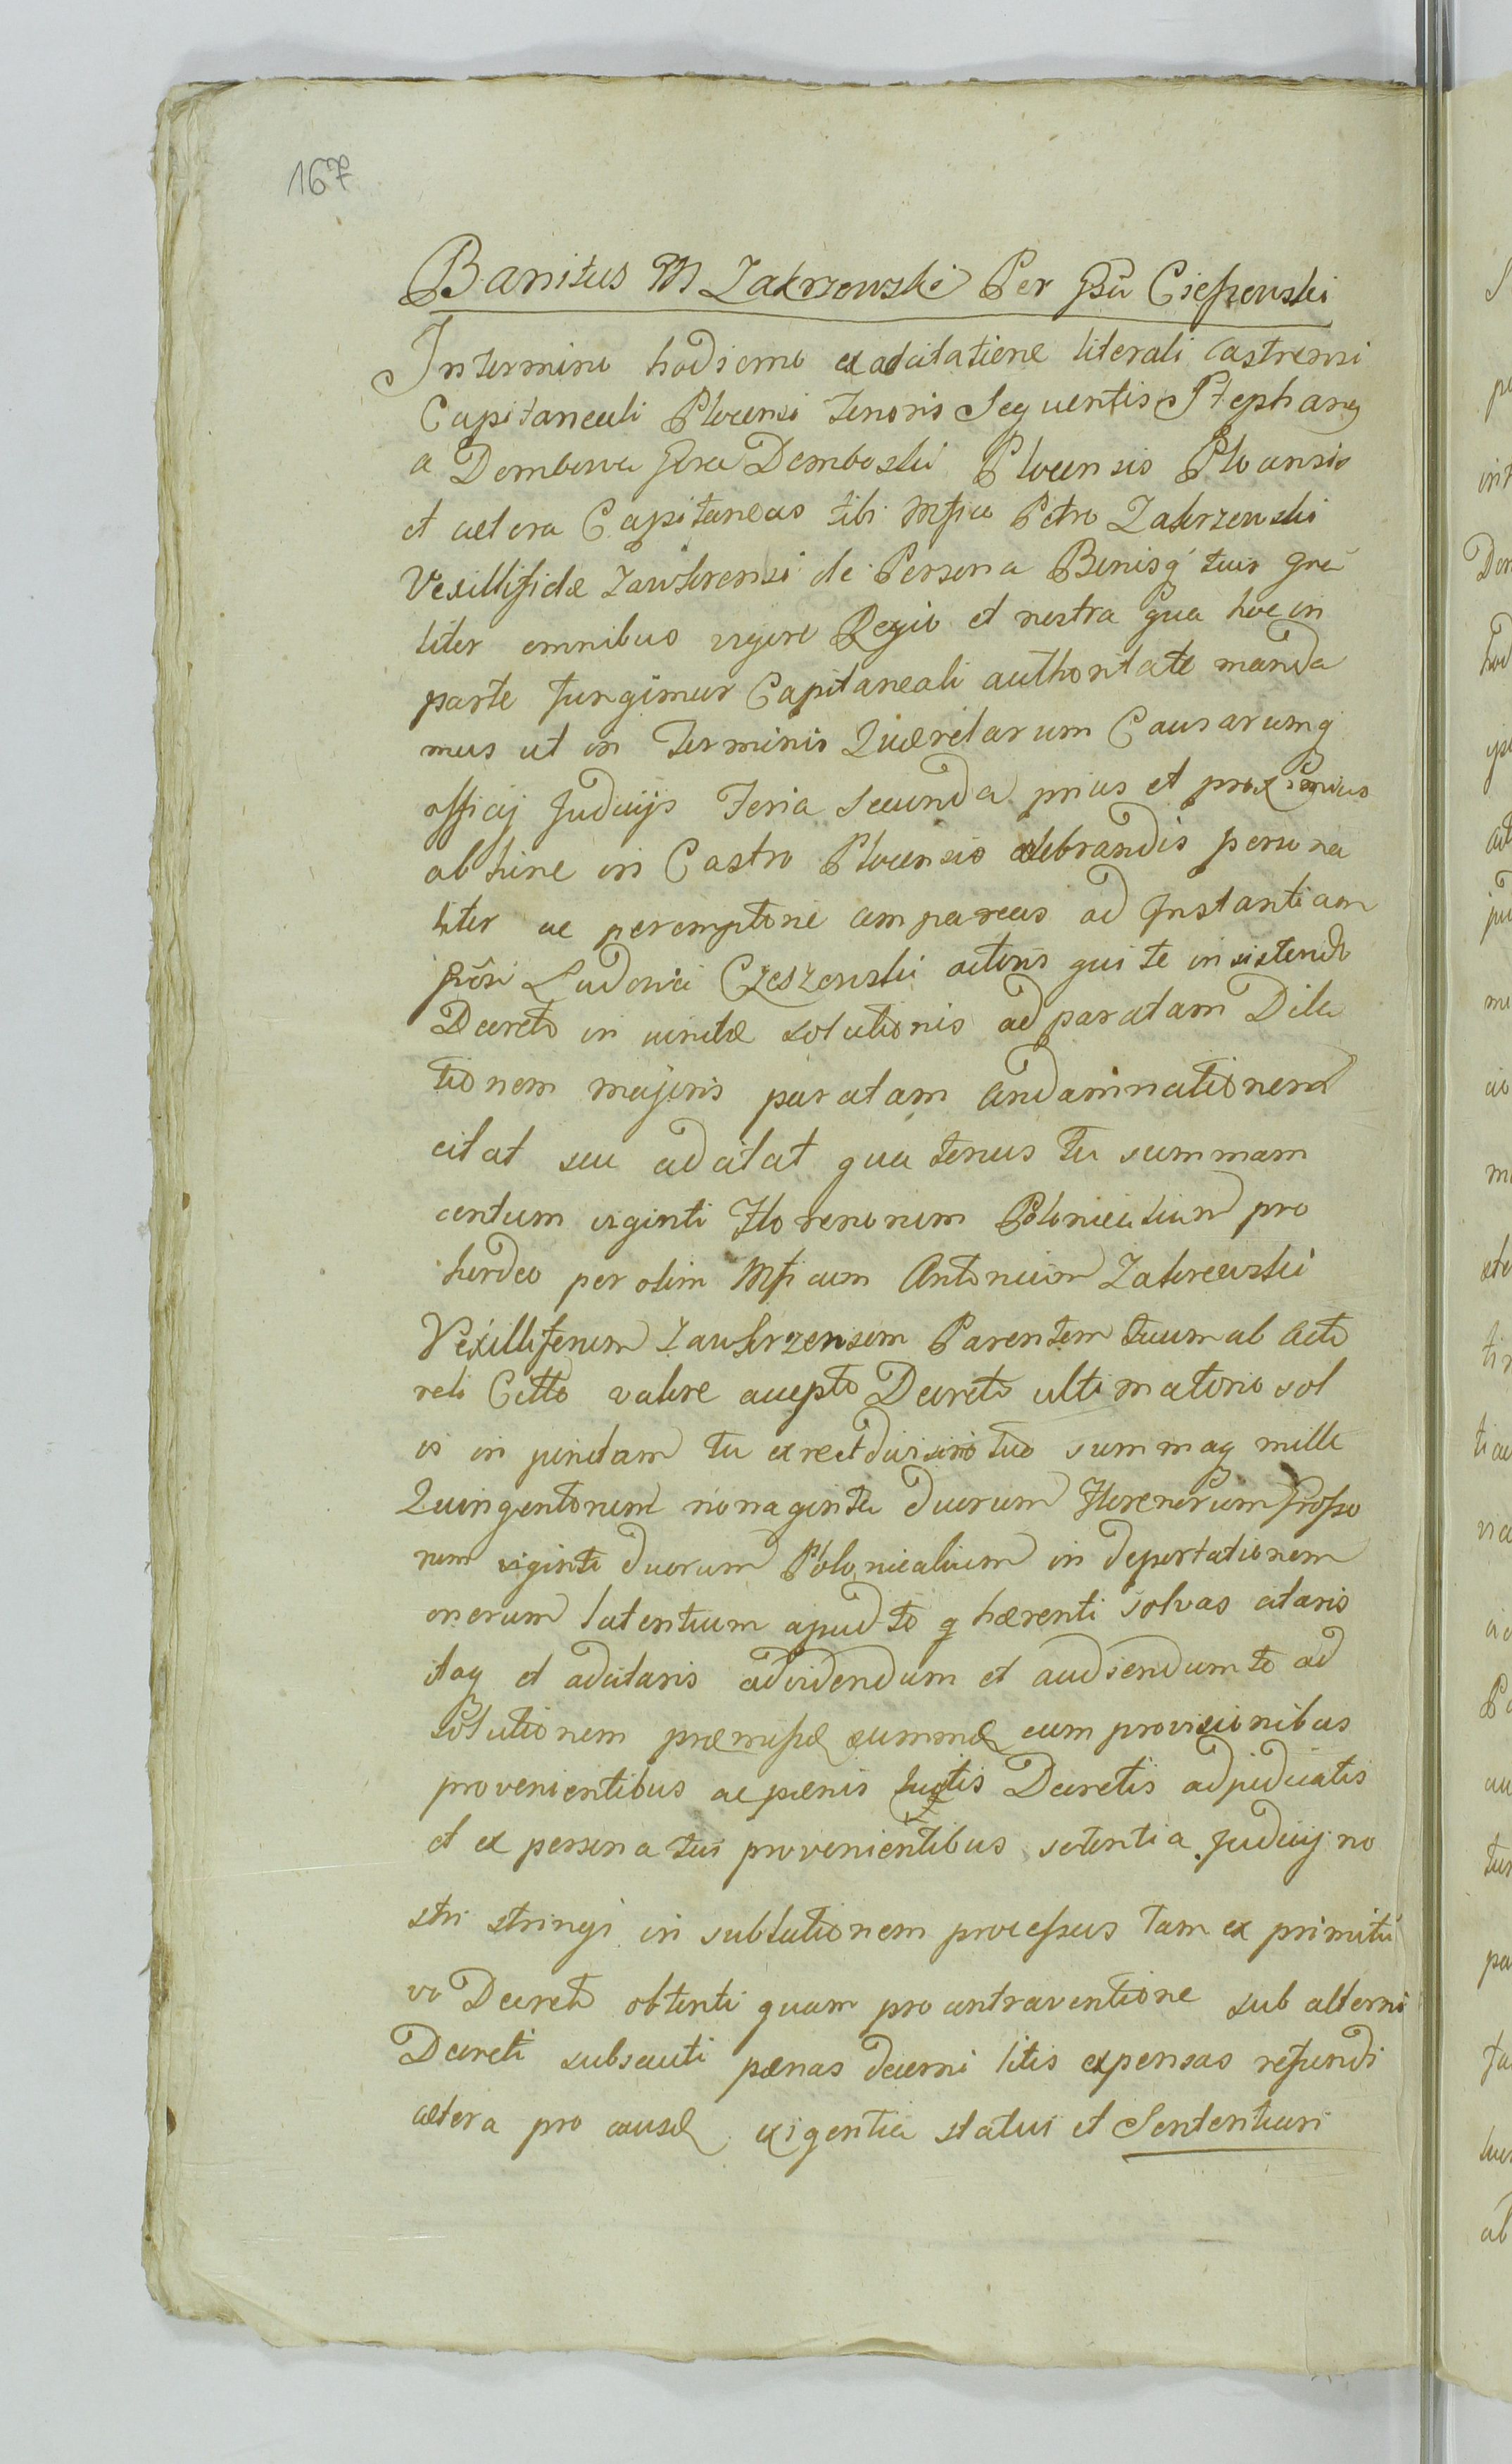 167
Banitus M Zakrzewski Per Gsū Ciessewski
In termino hodierno ex adcitatione literali Castrensi
Capitaneali Plocensi tenoris Sequentis Stephang
a Dembowa Gora Demboski Plocensis Ploansis
et cetera Capitaneus tibi Mfico Petro Zakrzewski
Vexillifide Zawkrensi de Persona Bonisq tuis gra
liter omnibus vigore Regio et nostra qua hoc in
parte fungimur Capitaneali authoritate manda
mus ut in Terminis Quæretarum Causarumq
officij Judicijs Feria Secunda prius et proxi
ab hinc in Castro Plocensis celebrandis persona
liter ac peremptorie compareas ad Instantiam
Ludovici Czeszewski actoris qui te insistendo
Decreto in vim solutionis ad paratam Dila
tionem majoris paratam Condamnationem
citat seu adcitat qua tenus tu summam
centum viginti Florenorum Polonicalium pro
hordeo per olim Mficum Antonium Zakrewski
Vexilliferum Zawkrzensem Parentem tuum ab Acto
reli Citto valore accepto Decreto ultimatorio sol
vi in junctam tu ex rect divisiorio tuo summaq mille
Quingentorum nonaginta duorum Florenorum Grosso
rum viginti duorum Polonicalium in deportationem
onerum latentium apud te q hærenti solvas citaris
itaq et adcitaris ad videndum et audiendum te ad
Solutionem præmissæ summæ cum provisionibus
provenientibus ac pænis luctis Decretis adjudicatis
et ex persona tui provenientibus setentia Judicij no
stri stringi in sublationem processus tam ex primiti
vo Decreto obtenti quam pro contraventione sub alterni
Decreti subsecuti pænas decerni litis expensas refundi
cetera pro causæ exigentia statui et Sententiari